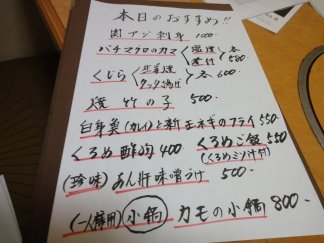 本日のおすすめ!!
関アジ刺身 1100-
バチマグロのカマ 塩焼 煮付 各580-
くじら 生姜焼 タッタ揚げ 各600-
焼竹の子 500-
白身魚(カレイ)と新玉ネギのフライ 550
くるめ酢肉 400 くるめご飯 550
(くるめミソ汁付)
(珍味) あん肝味噌漬け 500-
(一人様用) 小鍋 カモの小鍋 800-